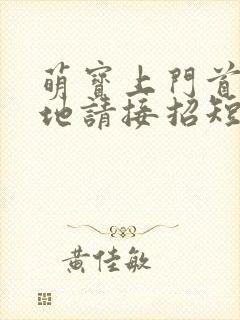 萌寶上門首
地請接招短
黃佳敏